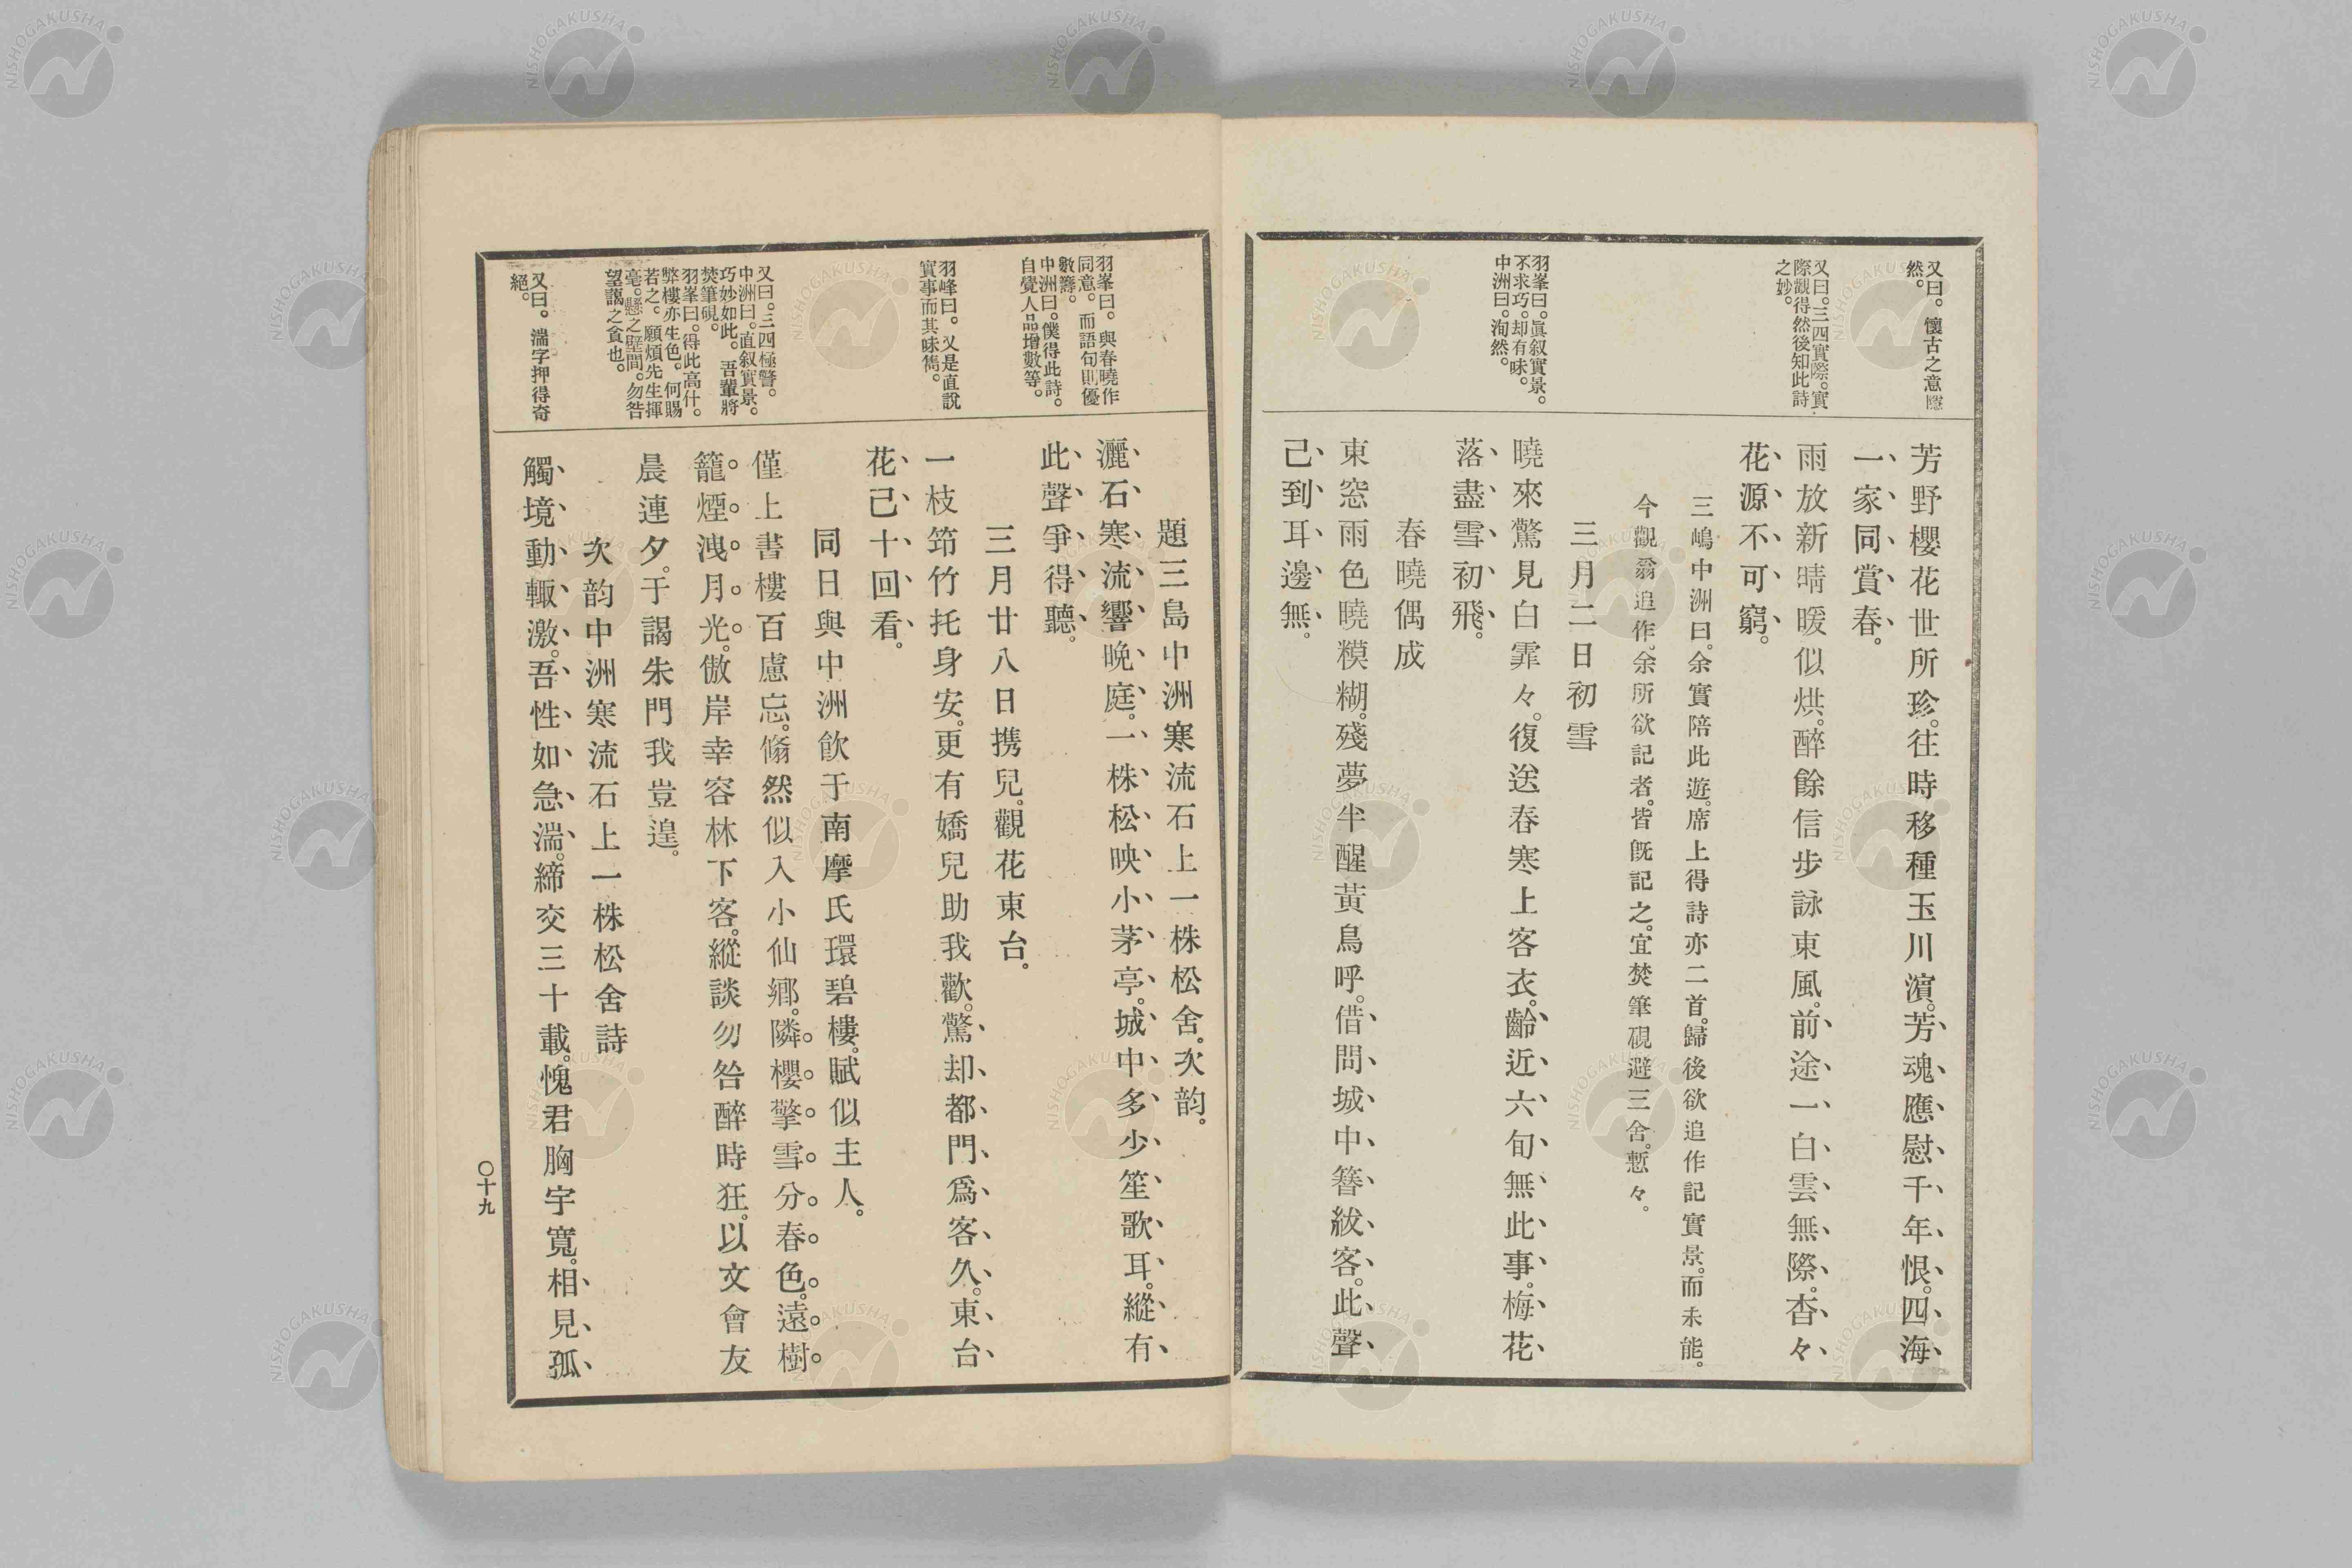 又曰。懷古之意隱
然。
又曰。三四實際。實
際觀得然後知此詩
之妙。
羽峯曰。眞叙實景。
不求巧。却有味。
中洲曰。洵然。
芳野櫻花世所珍。往時移種玉川濱。芳魂應慰千年恨。四海
一家同賞春。
雨放新晴暖似烘。醉餘信步詠東風。前途一白雲無際。杳々
花源不可窮。
三嶋中洲曰。余實陪此遊。席上得詩亦二首。歸後欲追作記實景。而未能。
今觀翁追作。余所欲記者。皆既記之。宜焚筆硯避三舍。慙々。
三月二日初雪
曉來驚見白霏々。復送春寒上客衣。齡近六旬無此事。梅花
落盡雪初飛。
春曉偶成
東窓雨色曉糢糊。殘夢半醒黃鳥呼。借問城中簪紱客。此聲
己到耳邊無。
羽峯曰。與春曉作
同意。而語句則優
數籌。
中洲曰。僕得此詩。
自覺人品增數等。
羽峰曰。又是直說
實事而其味雋。
又曰。三四極警。
中洲曰。直叙實景。
巧妙如此。吾輩將
焚筆硯。
羽峯曰。得此高什。
弊樓亦生色。何賜
若之。願煩先生揮
毫。懸之壁間。勿咎
望蜀之貪也。
又曰。湍字押得奇
絕。
題三島中洲寒流石上一株松舍。次韵。
灑石寒流響晚庭。一株松映小茅亭。城中多少笙歌耳。縱有
此聲爭得聽。
三月廿八日携兒。觀花東台。
一枝筇竹托身安。更有嬌兒助我歡。驚却都門爲客久。東台
花己十回看。
同日與中洲飮于南摩氏環碧樓。賦似主人。
僅上書樓百慮忘。翛然似入小仙鄉。隣櫻擎雪分春色。遠樹
籠煙洩月光。傲岸幸容林下客。縱談勿咎醉時狂。以文會友
晨連夕。于謁朱門我豈遑。
次韵中洲寒流石上一株松舍詩
觸境動輙激。吾性如急湍。締交三十載。愧君胸宇寬。相見孤
〇十九